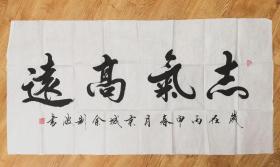 志氣高遠
歲在丙申春月京城余剑池書